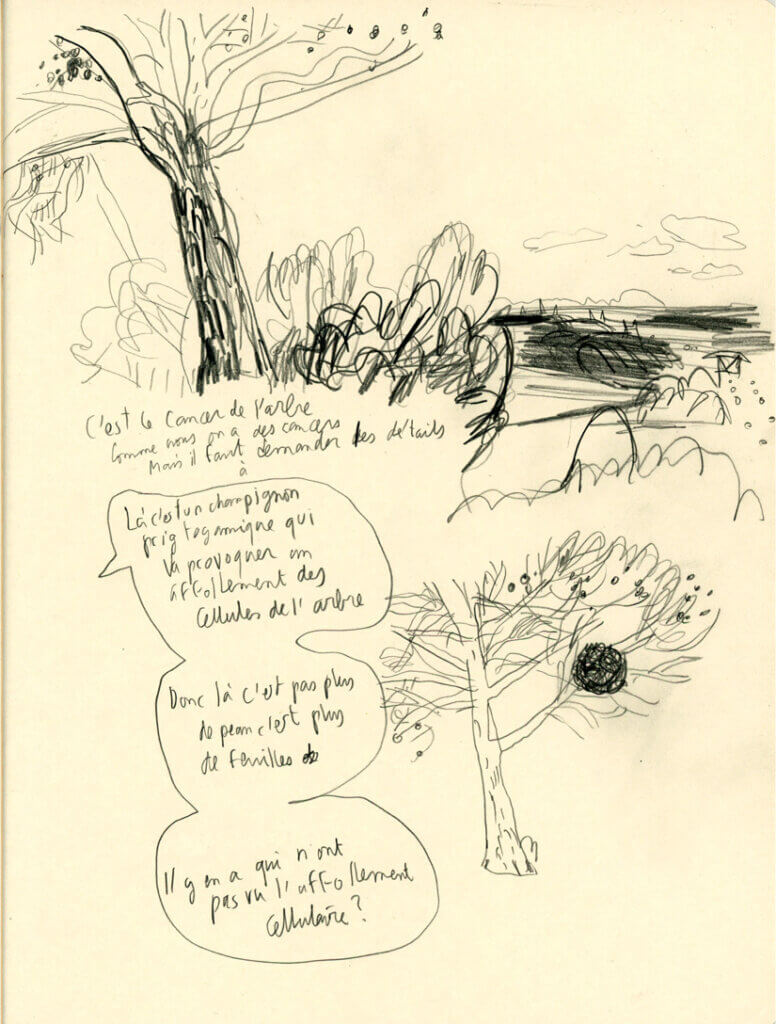 C'est le cancer de l'arbre
Comme nous on a des cancers
Mais il faut demander les détails
à
Là c'est un champignon
qui
va provoquer un
affollement des
cellules de l'arbre
Donc là c'est pas plus
de peau c'est plus
de feuilles de
Il y en a qui n'ont
pas vu l'affollement
cellulaire?